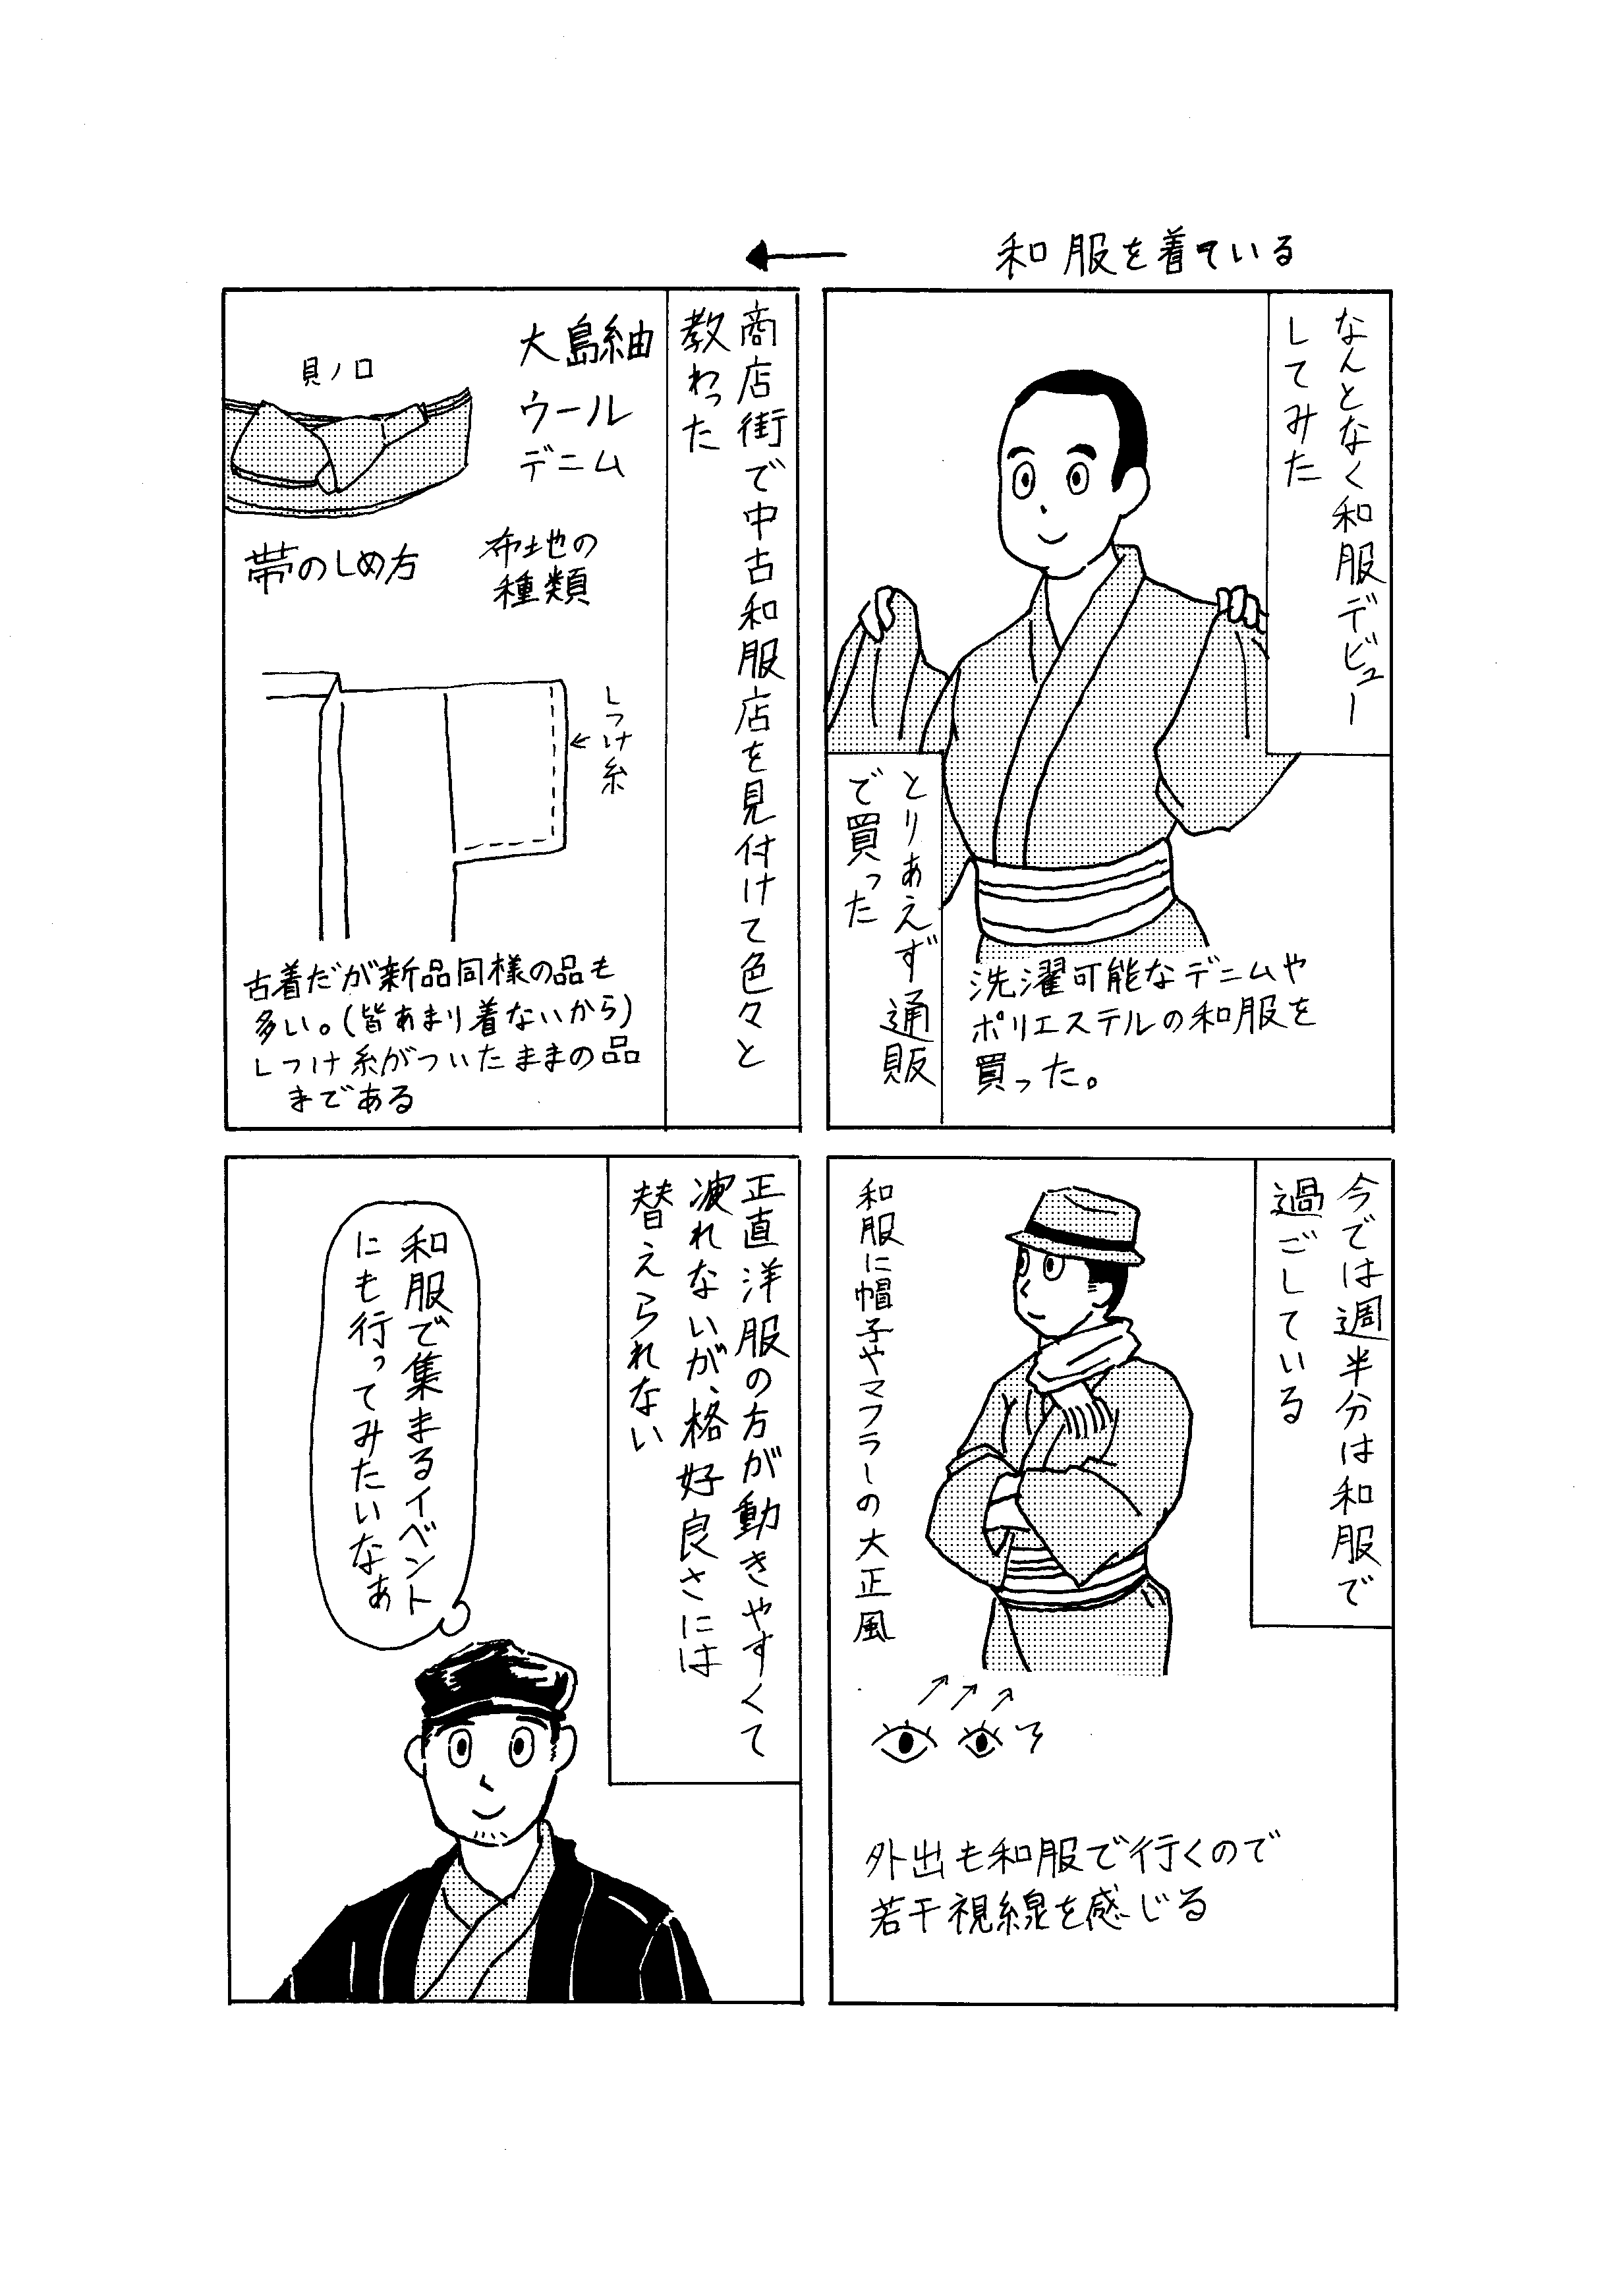 和服を着ている
なんとなく和服デビュー
してみた
とりあえず通販
で買った
洗濯可能なデニムや
ポリエステルの和服を
買った。
商店街で中古和服店を見付けて色々と
教わった
大島紬
ウール
デニム
布地の
種類
貝ノ口
帯のしめ方
しつけ糸
古着だが新品同様の品も
多い。(皆あまり着ないから)
しつけ糸がついたままの品
まである
今では週半分は和服で
過ごしている
和服に帽子やマフラーの大正風
外出も和服で行くので
若干視線を感じる
正直洋服の方が動きやすくて
疲れないが、格好良さには
替えられない
和服で集まるイベント
にも行ってみたいなあ